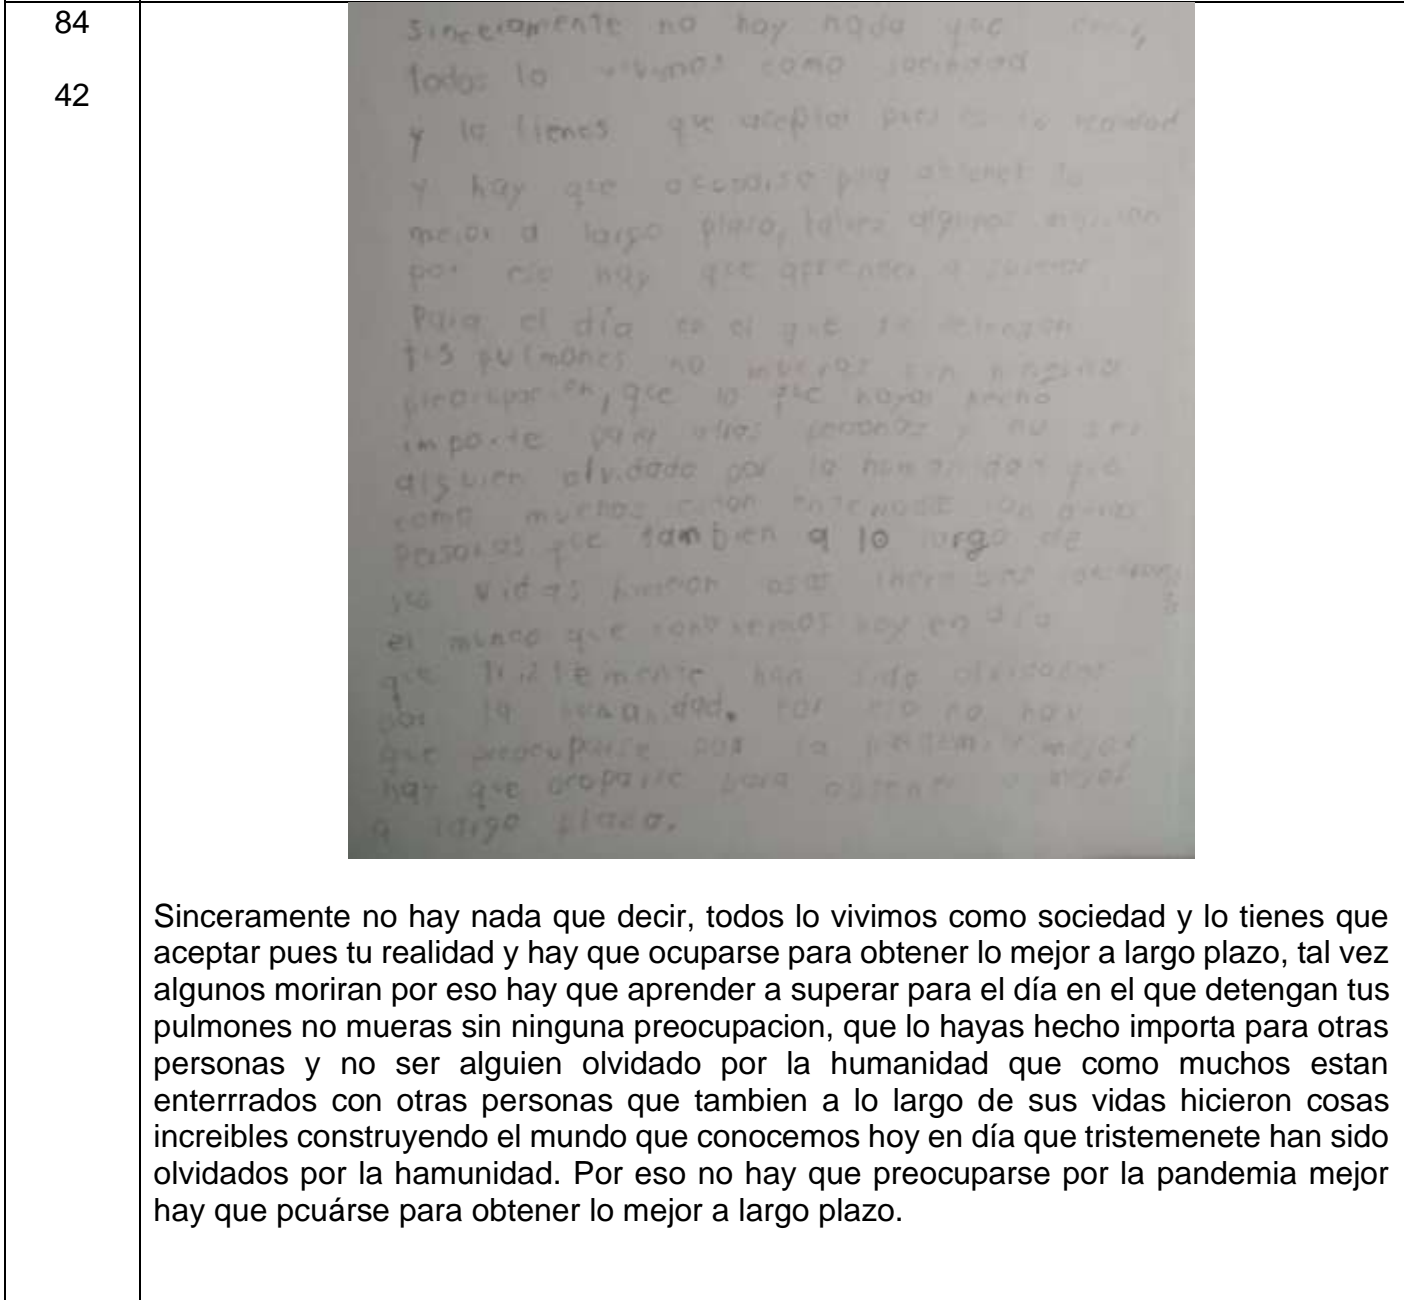 84
42
Sinceramente no hay nada que decir,
todos lo vivimos como sociedad
y lo tienes que aceptar pues es la realidad
y hay que ocuparse para obtener lo
mejor a largo plazo, talvez algunos moriran
por eso hay que aprender a superar
Para el día en el que se detengan
tus pulmones no mueras sin ninguna
preocupacion, que lo que hayas hecho
importe para otras personas y no ser
alguien olvidado por la humanidad que
como muchos estan enterrados con otras
personas que tambien a lo largo de
sus vidas hicieron cosas increibles
el mundo que conocemos hoy en día
que tristemente han sido olvidados
por la humanidad. Por eso no hay
que preocuparse por la pandemia mejor
hay que ocuparse para obtener lo mejor
a largo plazo.
Sinceramente no hay nada que decir, todos lo vivimos como sociedad y lo tienes que
aceptar pues tu realidad y hay que ocuparse para obtener lo mejor a largo plazo, tal vez
algunos moriran por eso hay que aprender a superar para el día en el que detengan tus
pulmones no mueras sin ninguna preocupacion, que lo hayas hecho importa para otras
personas y no ser alguien olvidado por la humanidad que como muchos estan
enterrrados con otras personas que tambien a lo largo de sus vidas hicieron cosas
increibles construyendo el mundo que conocemos hoy en día que tristemenete han sido
olvidados por la hamunidad. Por eso no hay que preocuparse por la pandemia mejor
hay que pcuárse para obtener lo mejor a largo plazo.